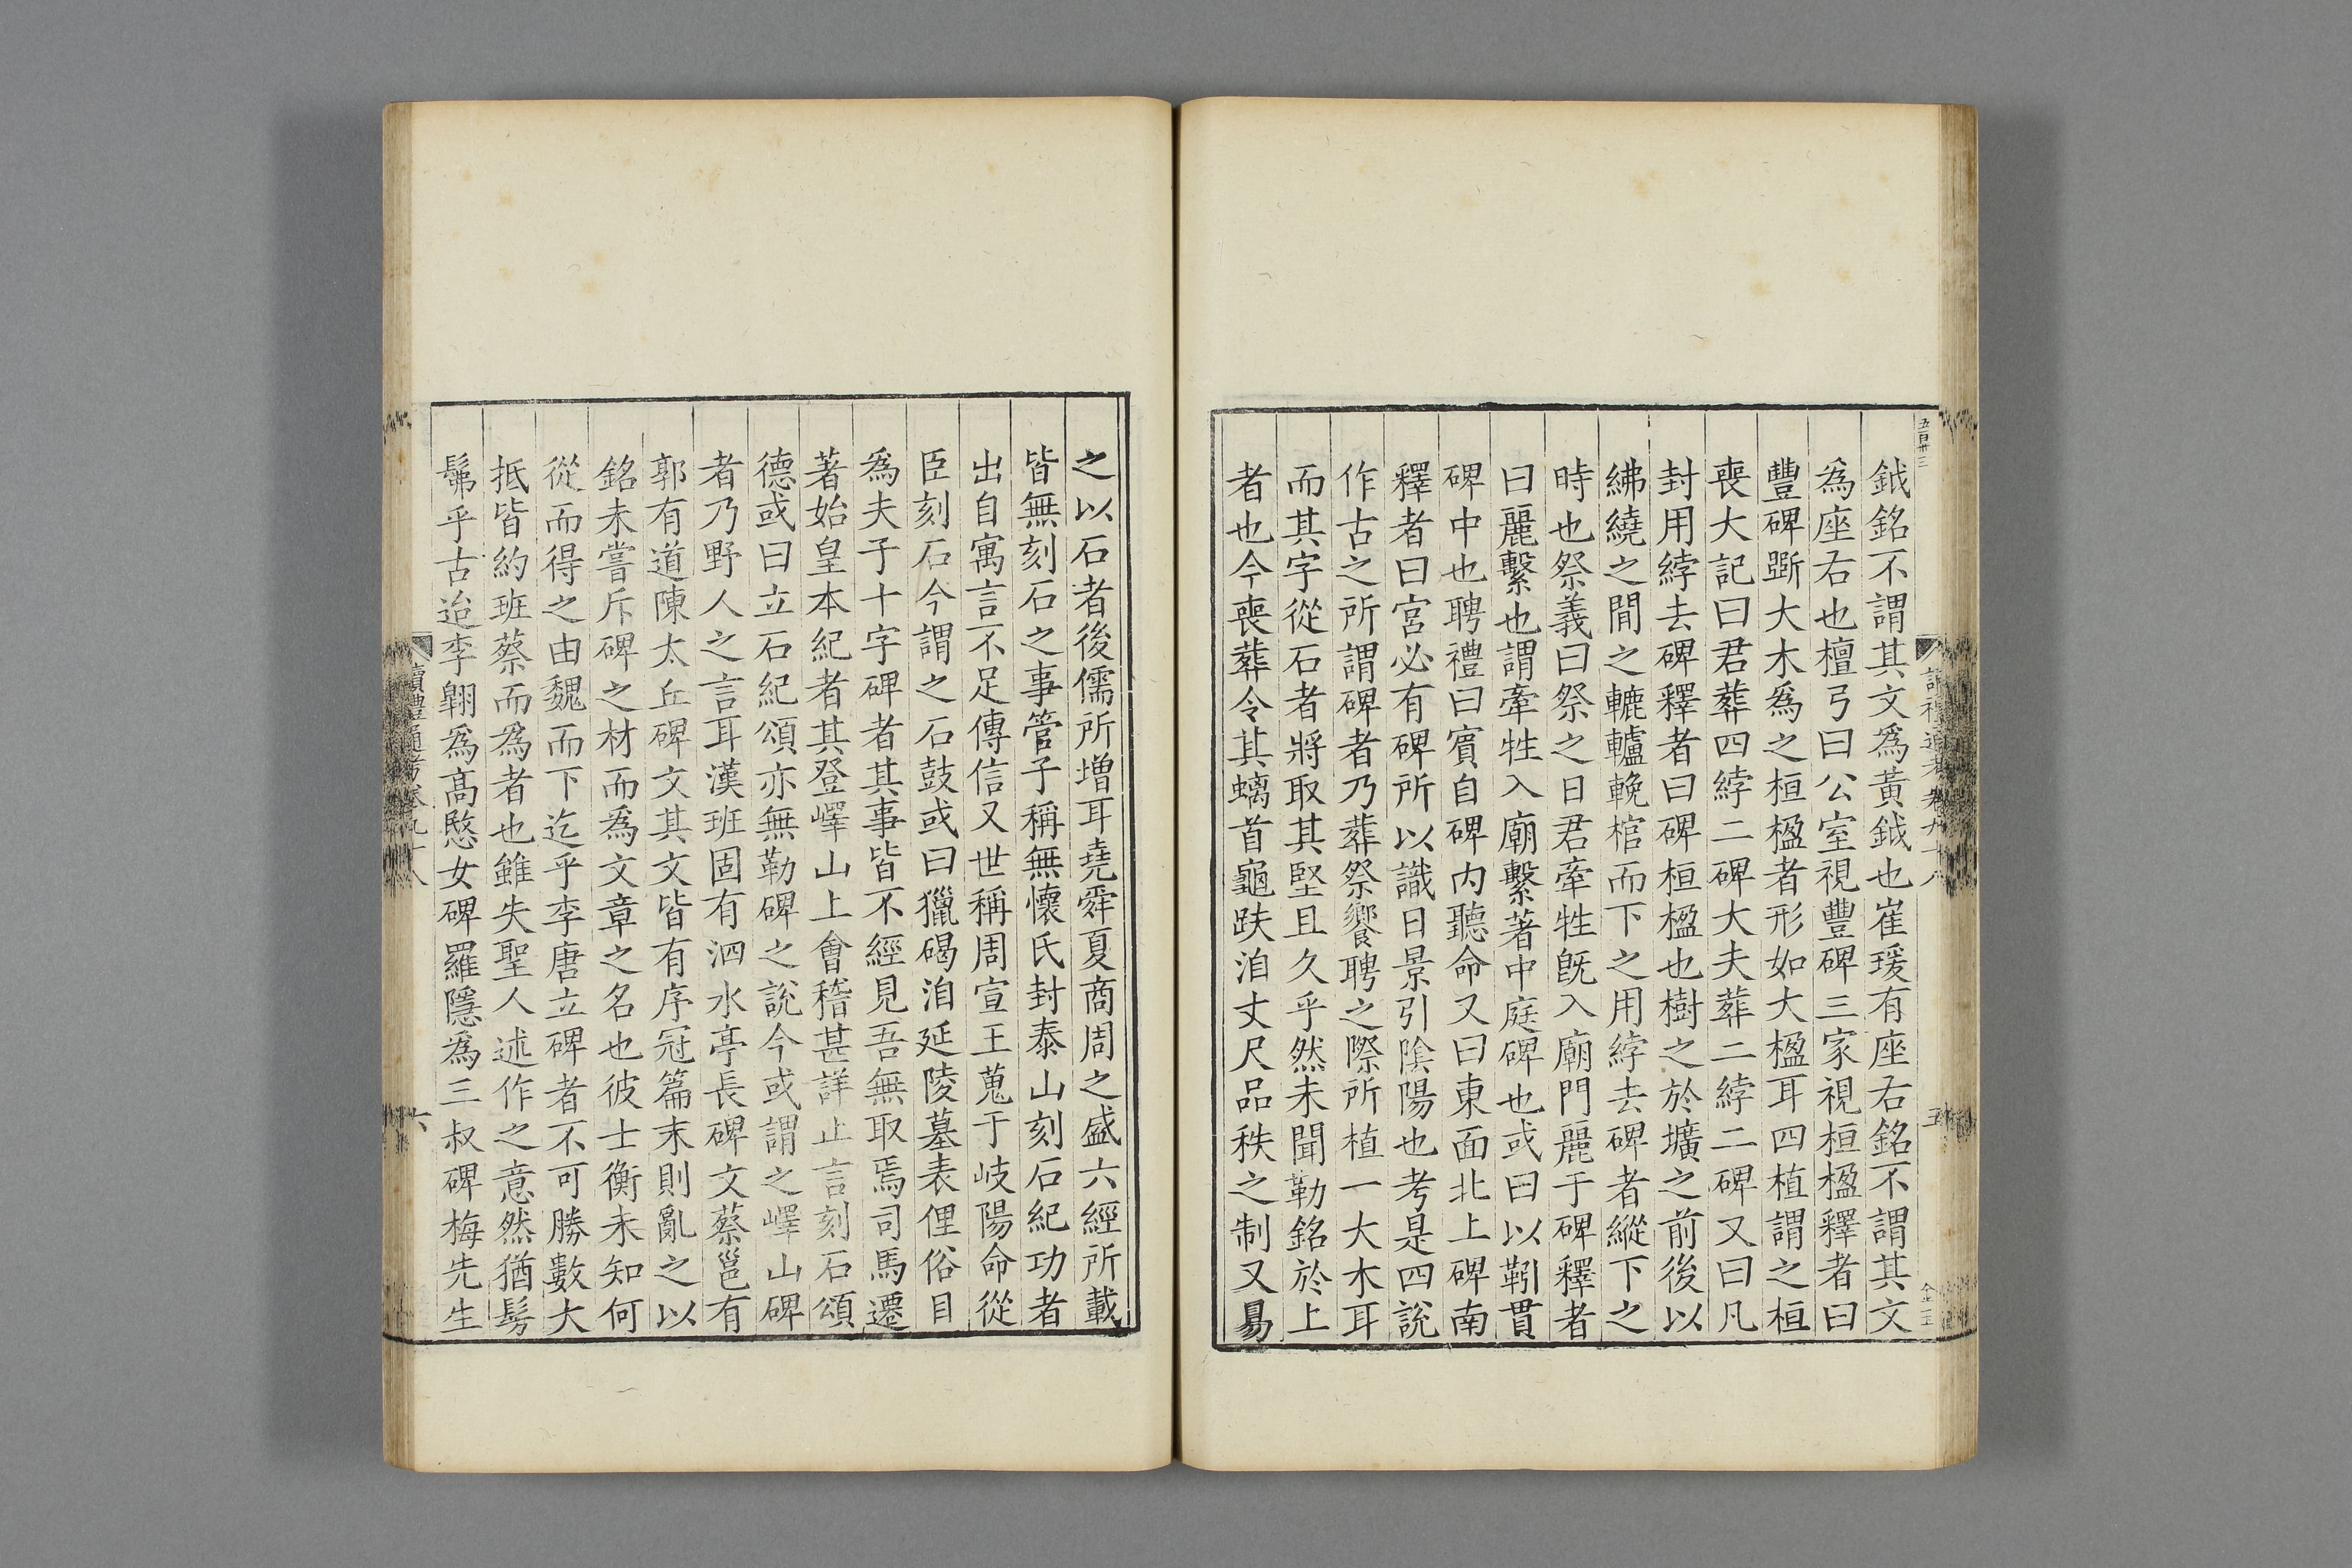 五百卅三
鉞銘不謂其文爲黃鉞也崔瑗有座右銘不謂其文
爲座右也檀弓曰公室視豐碑三家視桓楹釋者曰
豐碑斲大木爲之桓楹者形如大楹耳四植謂之桓
喪大記曰君葬四綍二碑大夫葬二綍二碑又曰凡
封用綍去碑釋者曰碑桓楹也樹之於壙之前後以
紼繞之間之轆轤輓棺而下之用綍去碑者縱下之
時也祭義曰祭之日君牽牲旣入廟門麗于碑釋者
曰麗繫也謂牽牲入廟繫著中庭碑也或曰以靷貫
碑中也聘禮曰賓自碑內聽命又曰東面北上碑南
釋者曰宮必有碑所以識日景引陰陽也考是四說
作古之所謂碑者乃葬祭饗聘之際所植一大木耳
而其字從石者將取其堅且久乎然未聞勒銘於上
者也今喪葬令其螭首龜趺洎丈尺品秩之制又易
讀禮通考卷九十八
五
之以石者後儒所增耳堯舜夏商周之盛六經所載
皆無刻石之事管子稱無懷氏封泰山刻石紀功者
出自寓言不足傳信又世稱周宣王蒐于岐陽命從
臣刻石今謂之石鼓或曰獵碣洎延陵墓表俚俗目
爲夫子十字碑者其事皆不經見吾無取焉司馬遷
著始皇本紀者其登嶧山上會稽甚詳止言刻石頌
德或曰立石紀頌亦無勒碑之說今或謂之嶧山碑
者乃野人之言耳漢班固有泗水亭長碑文蔡邕有
郭有道陳太丘碑文其文皆有序冠篇末則亂之以
銘未嘗斥碑之材而爲文章之名也彼士衡未知何
從而得之由魏而下迄乎李唐立碑者不可勝數大
抵皆約班蔡而爲者也雖失聖人述作之意然猶髣
髴乎古迨李翺爲高愍女碑羅隱爲三叔碑梅先生
讀禮通考卷九十八
六